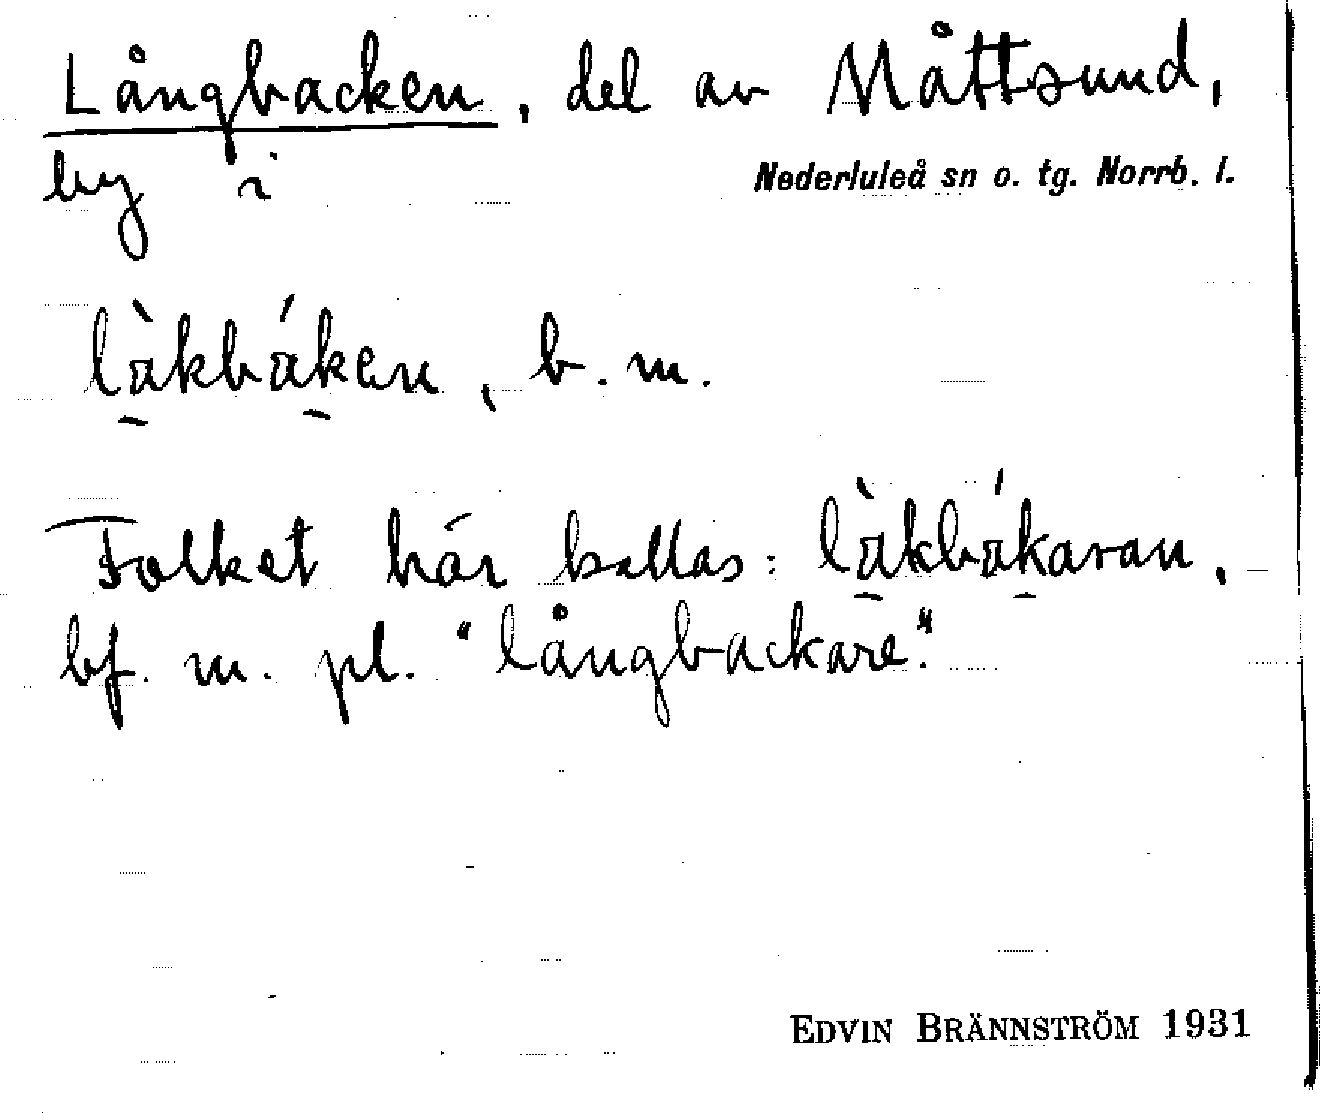 Långbacken, del av Måttsund,
by i Nederluleå sn o. tg. Norrb. l.
là̱kbá̱ken, b. m.
Folket här kallas: là̱kbá̱karan,
bf. m. pl. "långbackare".
EDVIN BRÄNNSTRÖM 1931